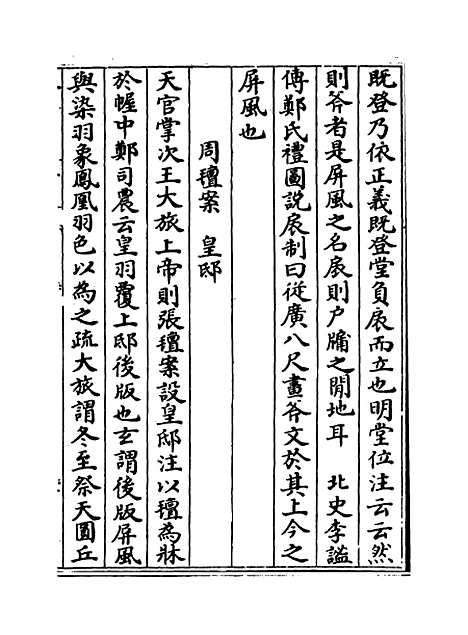 既登乃依正義既登堂負扆而立也明堂位注云云然
則斧者是屏風之名扆則户牖之間地耳　北史李謐
傳鄭氏禮圖說扆制曰從廣八尺畫斧文於其上今之
屏風也
周氊案　皇邸
天官掌次王大旅上帝則張氊案設皇邸注以氊為牀
於幄中鄭司農云皇羽覆上邸後版也玄謂後版屏風
與染羽象鳳凰羽色以為之疏大旅謂冬至祭天圓丘